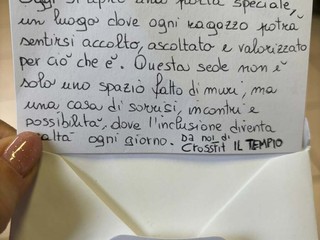 Oggi si apre una porta speciale,
un luogo dove ogni ragazzo potrà
sentirsi accolto, ascoltato e valorizzato
per ciò che è. Questa sede non è
solo uno spazio fatto di muri, ma
una casa di sorrisi, incontri e
possibilità, dove l'inclusione diventa
realtà ogni giorno. Da noi di
CROSSFIT IL TEMPIO